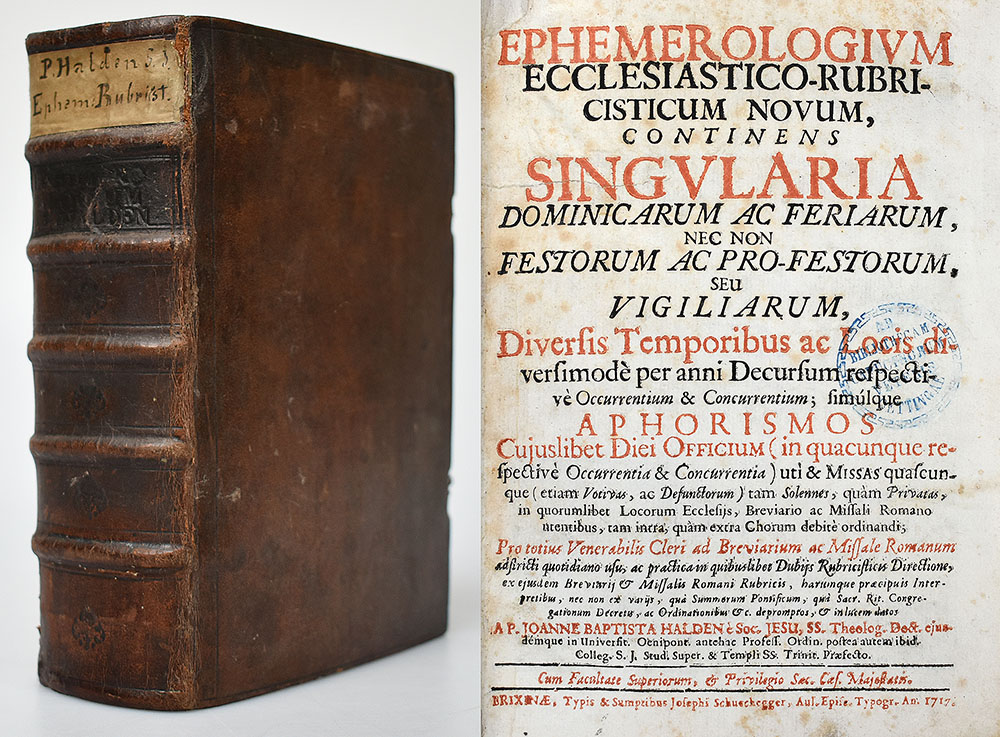 P. Halden S.J.
Ephem: Rubrist.
LDEN
EPHEMEROLOGIVM
ECCLESIASTICO-RUBRI-
CISTICUM NOVUM,
CONTINENS
SINGVLARIA
DOMINICARUM AC FERIARUM,
NEC NON
FESTORUM AC PRO-FESTORUM,
SEU
VIGILIARUM,
Diversis Temporibus ac Locis di-
versimodè per anni Decursum respecti-
vè Occurrentium & Concurrentium; simúlque
APHORISMOS
Cujuslibet Diei OFFICIUM (in quacunque re-
spectivè Occurrentia & Concurrentia) uti & MISSAS quascun-
que (etiam Votivas, ac Defunctorum) tam Solennes, quàm Privatas,
in quorumlibet Locorum Ecclesijs, Breviario ac Missali Romano
utentibus, tam intra, quàm extra Chorum debitè ordinandi;
Pro totius Venerabilis Cleri ad Breviarium ac Missale Romanum
adstricti quotidiano usu, ac practica in quibuslibet Dubijs Rubricisticis Directione,
ex ejusdem Breviarij & Missalis Romani Rubricis, harumque præcipuis Inter-
pretibus, nec non ex varijs, quà Summorum Pontificum, quà Sacr. Rit. Congre-
gationum Decretis, ac Ordinationibus &c. depromptos, & in lucem datos
A P. JOANNE BAPTISTA HALDEN è Soc. JESU, SS. Theolog. Doct. ejus-
démque in Universit. Oenipont. antehac Profess. Ordin. postea autem ibid.
Colleg. S. J. Stud. Super. & Templi SS. Trinit. Præfecto.
Cum Facultate Superiorum, & Privilegio Sac. Cæs. Majestatis.
BRIXINÆ, Typis & Sumptibus Josephi Schuechegger, Aul. Epise. Typogr. An. 1717.
AD
BIBLIOTHECAM